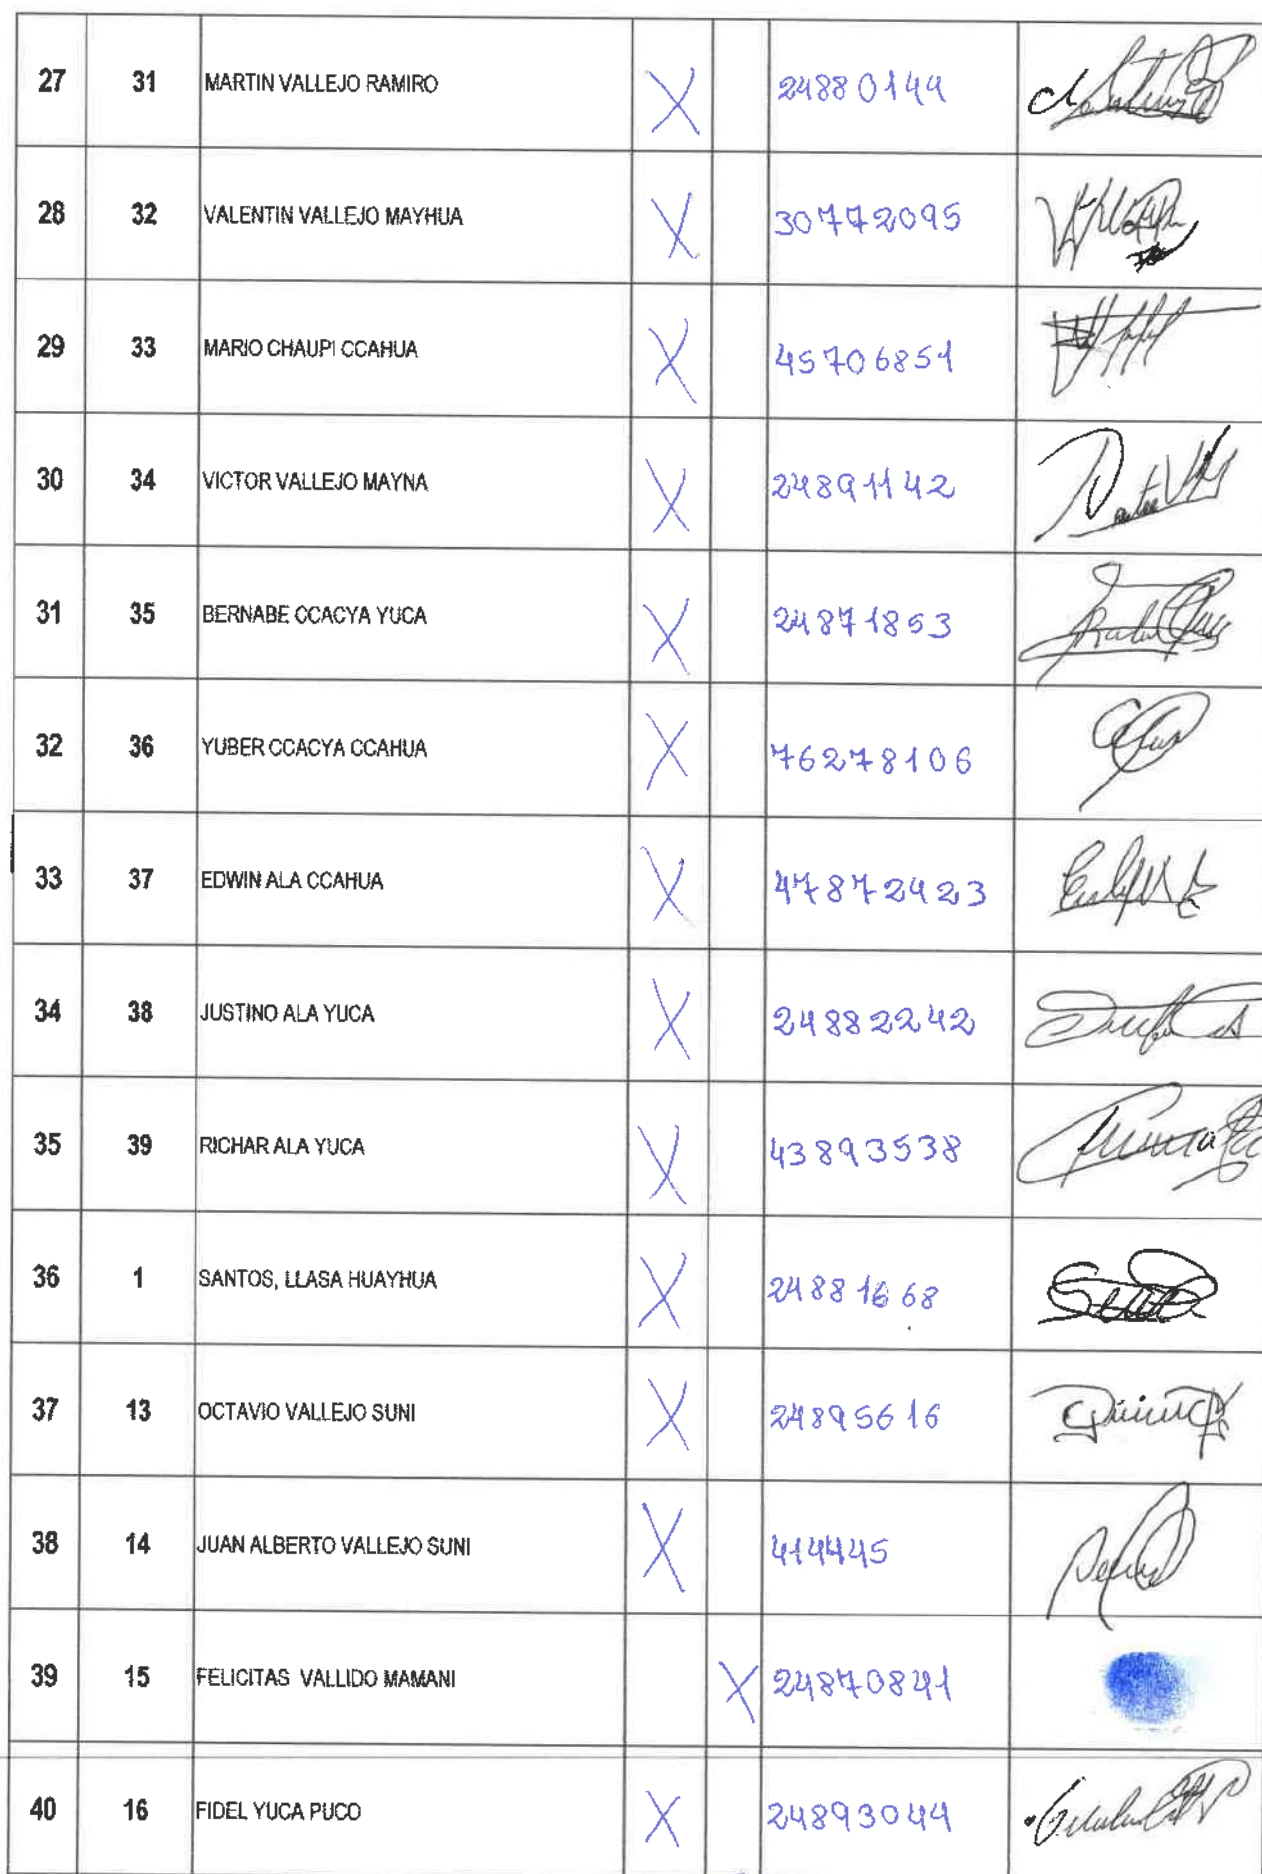 27 31 MARTIN VALLEJO RAMIRO X 24880144
28 32 VALENTIN VALLEJO MAYHUA X 30772095
29 33 MARIO CHAUPI CCAHUA X 45706851
30 34 VICTOR VALLEJO MAYNA X 24891142
31 35 BERNABE CCACYA YUCA X 24871853
32 36 YUBER CCACYA CCAHUA X 76278106
33 37 EDWIN ALA CCAHUA X 47872423
34 38 JUSTINO ALA YUCA X 24882242
35 39 RICHAR ALA YUCA X 43893538
36 1 SANTOS, LLASA HUAYHUA X 24881668
37 13 OCTAVIO VALLEJO SUNI X 24895616
38 14 JUAN ALBERTO VALLEJO SUNI X 414445
39 15 FELICITAS VALLIDO MAMANI X 24870841
40 16 FIDEL YUCA PUCO X 24893044